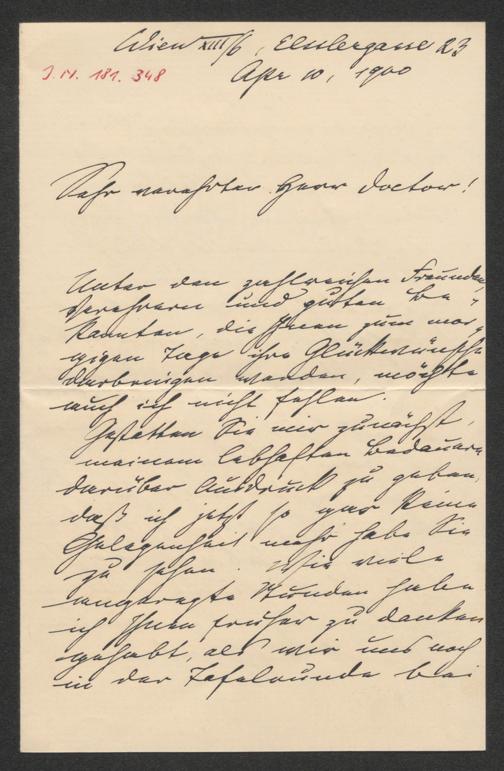 Wien XIII/6, Elsslergasse 23
J. N. 181.348
Apr 10, 1900
Sehr verehrter Herr Doctor!
Unter den zahlreichen Freunden,
Verehrern und guten Be-
kannten, die Ihnen zum mor-
gigen Tage ihre Glückwünsche
darbringen werden, möchte
auch ich nicht fehlen.
Gestatten Sie mir zunächst,
meinem lebhaften Bedauern
darüber Ausdruck zu geben,
daß ich jetzt so gar keine
Gelegenheit mehr habe Sie
zu sehen. Wie viele
angeregte Stunden habe
ich Ihnen früher zu danken
gehabt, als wir uns noch
in der Tafelrunde bei